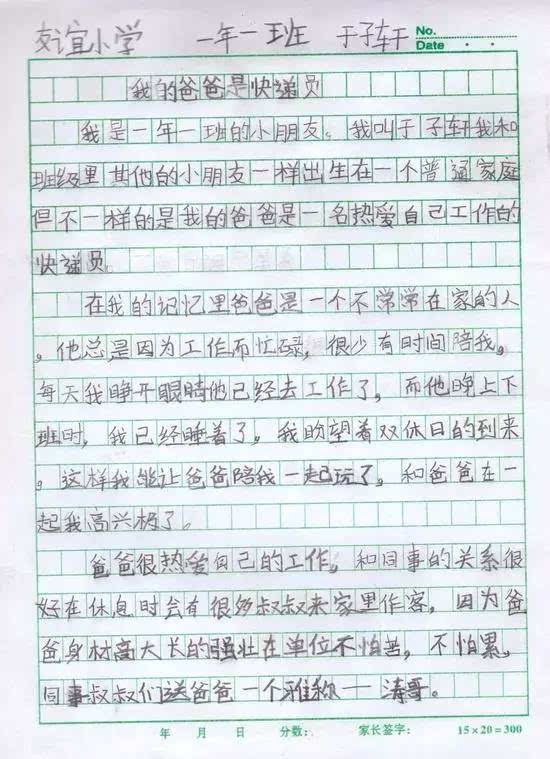 友谊小学 一年一班 于子轩 No.
Date . .
我的爸爸是快递员
我是一年一班的小朋友。我叫于子轩我和
班级里其他的小朋友一样出生在一个普通家庭
但不一样的是我的爸爸是一名热爱自己工作的
快递员。
在我的记忆里爸爸是一个不常常在家的人
。他总是因为工作而忙碌，很少有时间陪我。
每天我睁开眼睛他已经去工作了，而他晚上下
班时，我已经睡着了。我盼望着双休日的到来
。这样我能让爸爸陪我一起玩了。和爸爸在一
起我高兴极了。
爸爸很热爱自己的工作。和同事的关系很
好在休息时会有很多叔叔来家里作客，因为爸
爸身材高大长的强壮在单位不怕苦，不怕累。
同事叔叔们送爸爸一个雅称一涛哥。
年 月 日 分数: 家长签字: 15×20=300